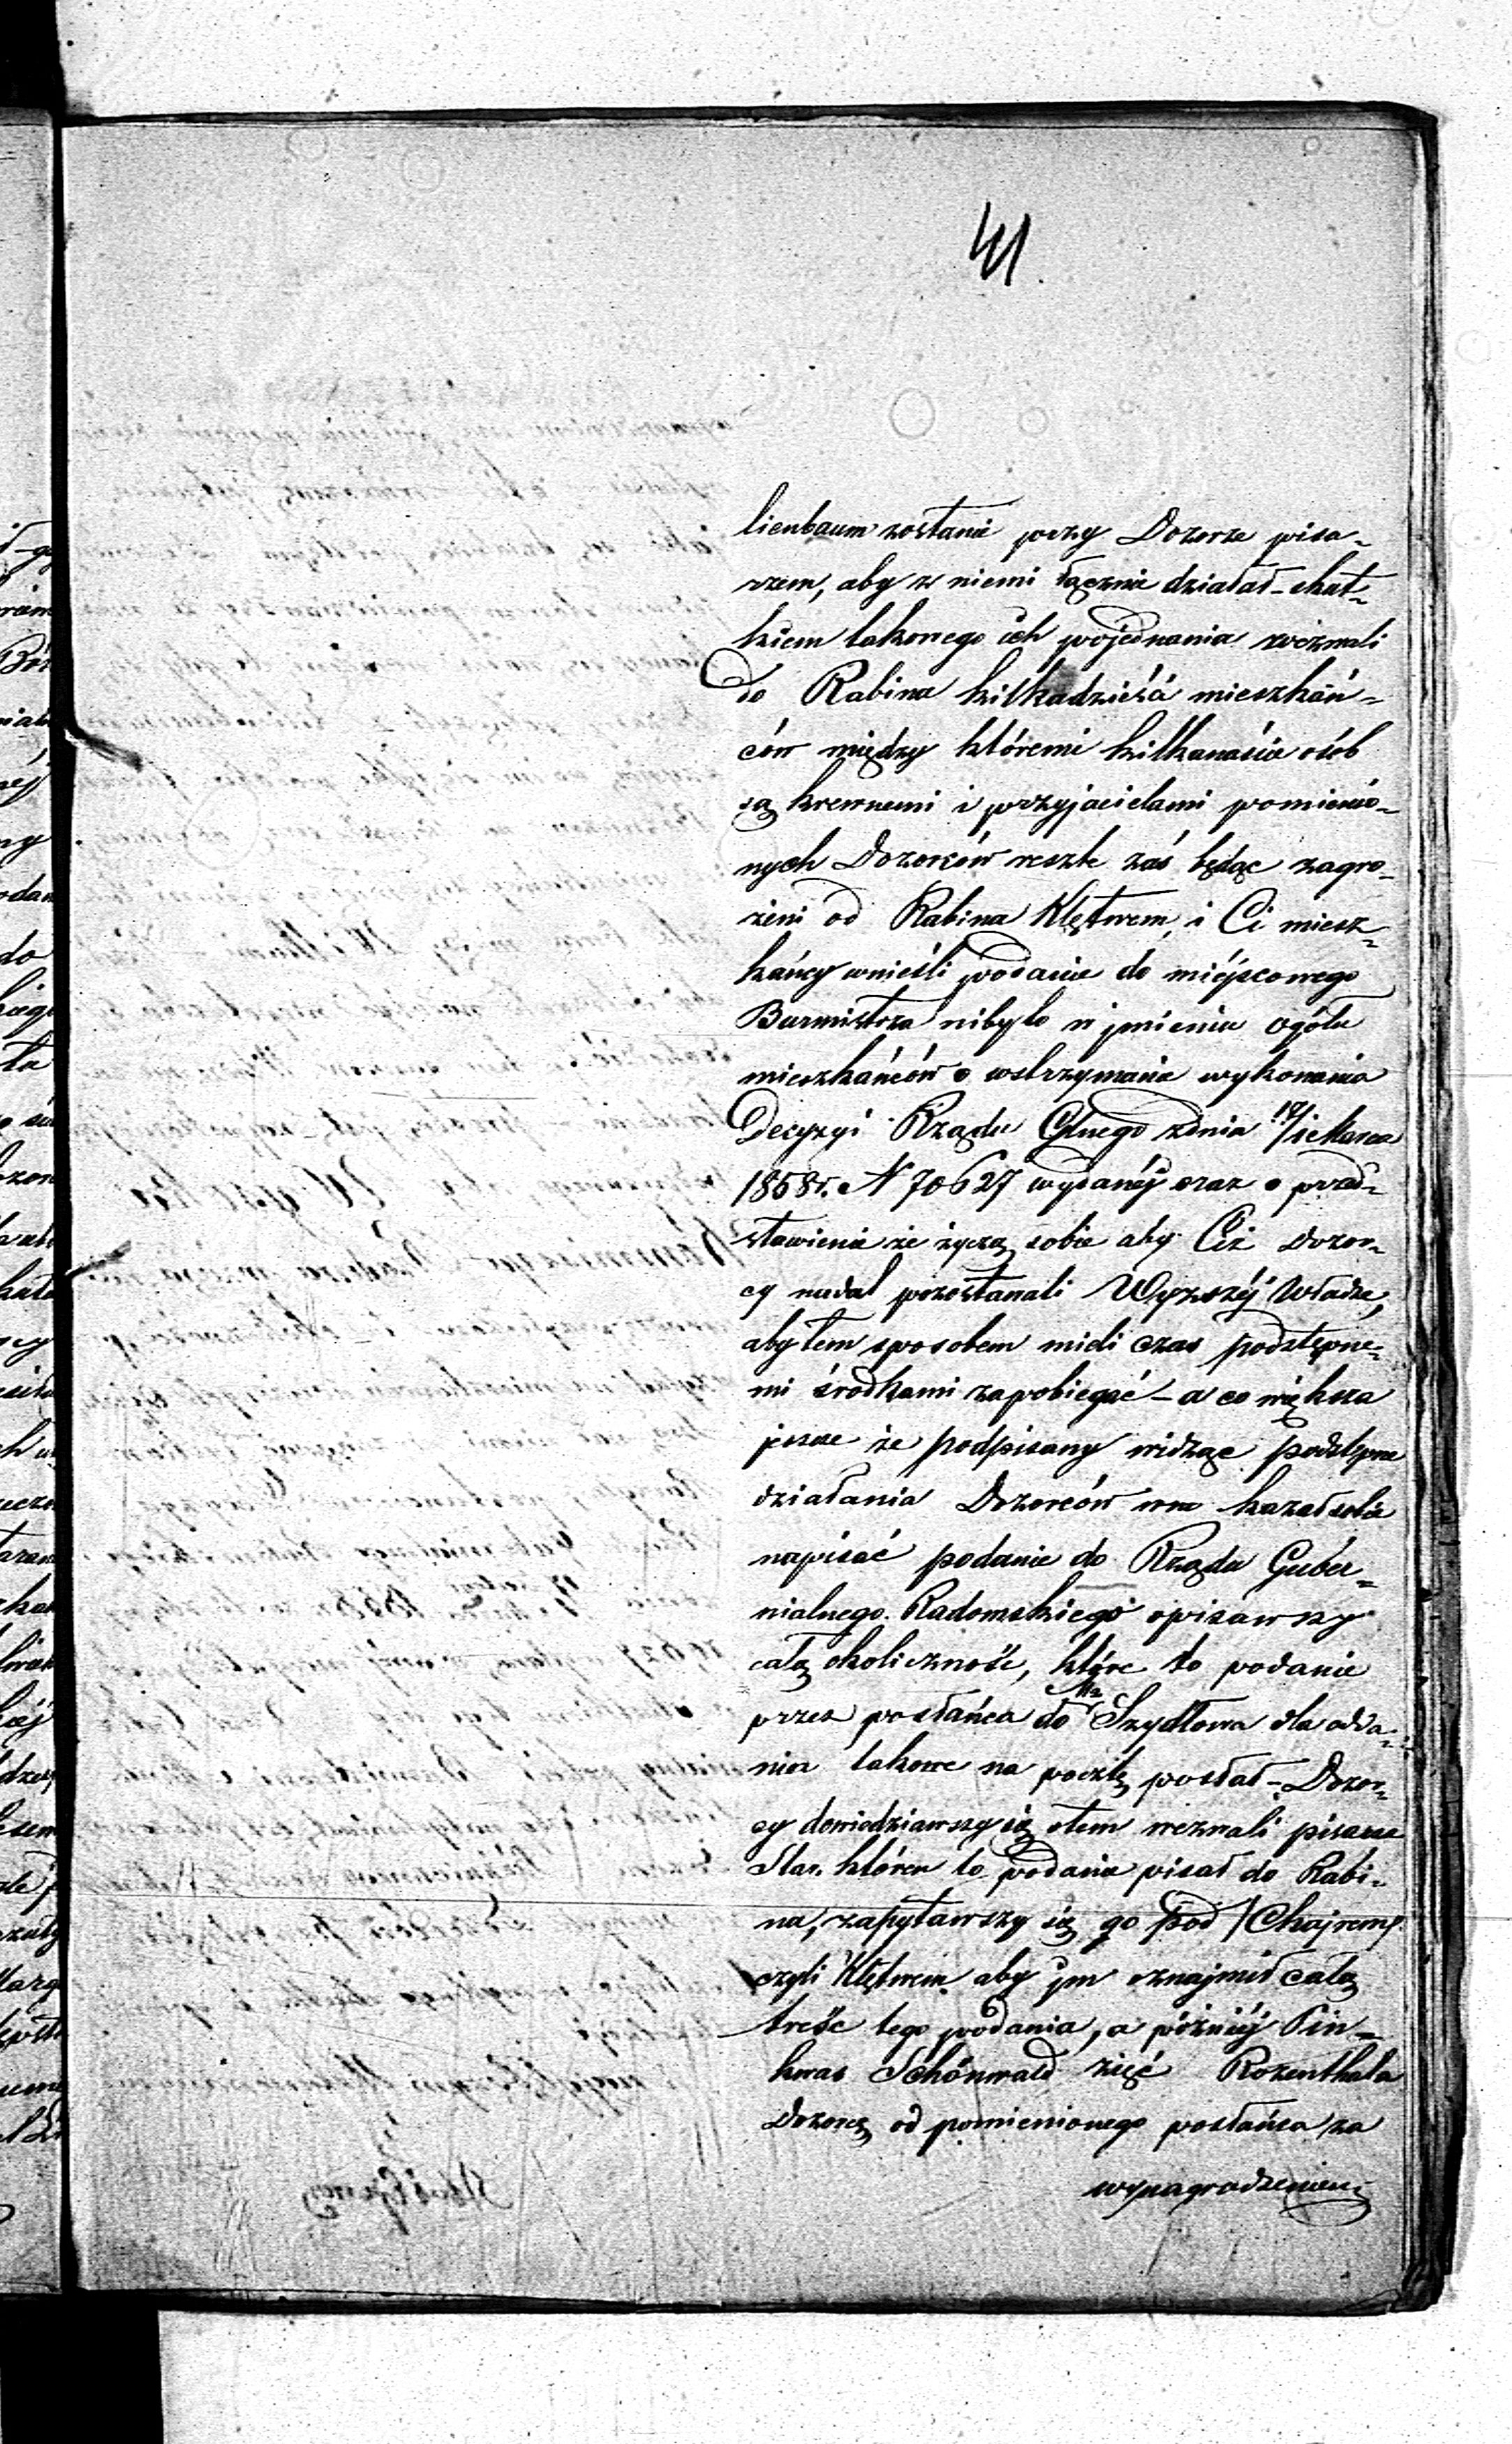 41.
lienbaum zostanie przy Dozorze pisa-
rzem, aby z niemi łącznie działał – skut-
kiem takowego ich pojednania zwezwali
do Rabina kilkadzieśiá mieszkań-
ców między któremi kilkanaście osób
są krewnemi i przyjacielami pomienio-
nych Dozorców reszte zaś będąc zagro-
żeni od Rabina Klętwem, i Ci miesz-
kańcy wnieśli podanie do miéjscowego
Burmistrza niby to w jmieniu ogółu
mieszkańców o wstrzymanie wykonania
Decyzyi Rządu Glnego zdnia Marca
1858 r. N 70627 wydanéj oraz o przed-
stawienie że życzą sobie aby Ciż Dozor-
cy nadal pozostanali Wyższéj Władze,
aby tem sposobem mieli czas podstępne-
mi środkami zapobiegać – a co większa
jescze że podpisany widząc podstępne
działania Dozorców kazał sobie
napisać podanie do Rządu Guber-
nialnego Radomskiego opisawszy
całą okoliczność, które to podanie
przez posłańca do Ma Szydłowa dla odda-
nia takowe na pocztę posłał – Dozor-
cy dowiedziawszy się otem wezwali pisarza
Star. któren to podanie pisał do Rabi-
na, zapytawszy się go pod /Chajrem/
czyli Klętwem aby jm oznajmił całą
treśc tego podania, a późniéj Pin-
kwas Schönwald zięć Rozenthala
Dozorcą od pomienionego posłańca za
wynagrodzeniem